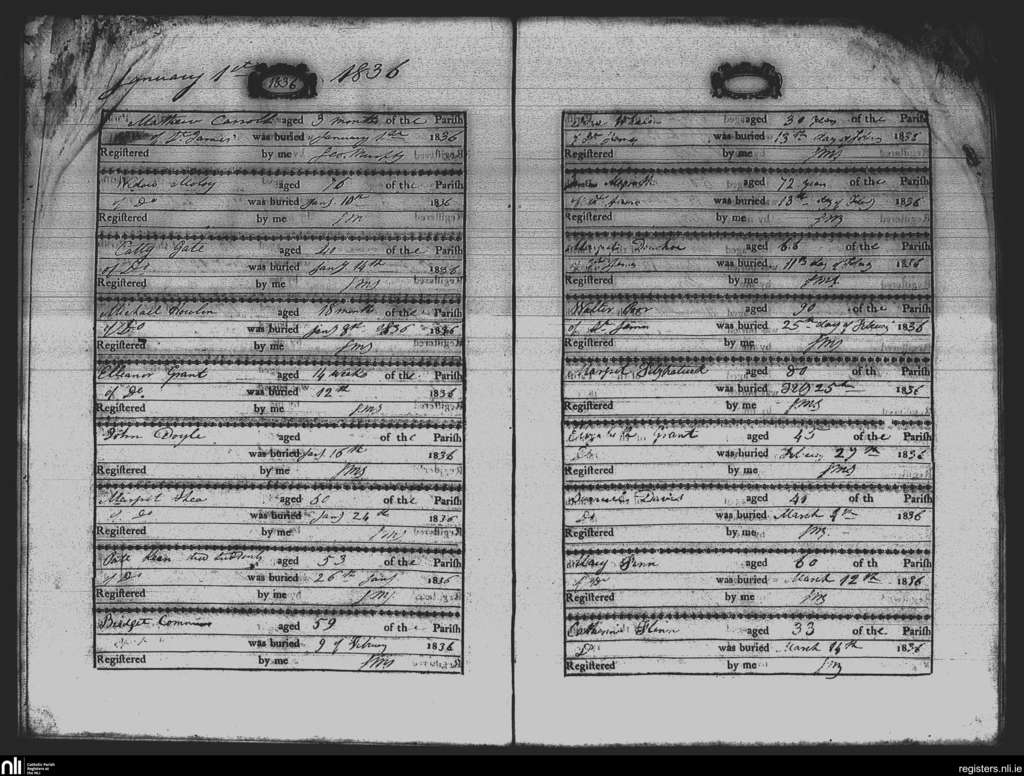 January 1st 1836 1836
Mathew Carroll aged 3 months of the Parish
of St James was buried January 1st 1836
Registered by me Geo. Murphy
Widow Moloy aged 76 of the Parish
of Do was buried Jany 10th 1836
Registered by me
Catty Gate aged 40 of the Parish
of Do was buried Jany 14th 1836
Registered by me Jms
Michall Howlin aged 18 months of the Parish
of Do was buried Jany 8th 1836 1836
Registered by me Jms
Elleanor Grant aged 14 weeks of the Parish
of Do. was buried 12th 1836
Registered by me Jms
John Doyle aged of the Parish
was buried Jany 16th 1836
Registered by me Jms
Margret Shea aged 80 of the Parish
of Do was buried Jany 24th 1836
Registered by me Jms
died suddenly aged 53 of the Parish
of Do was buried 26th Jany 1836
Registered by me Jms
Bridget Commins aged 59 of the Parish
was buried 9 of Februy 1836
Registered by me Jms
Whelen aged 30 years of the Parish
of St James was buried 13th day of 1836
Registered by me Jms
aged 72 years of the Parish
of St James was buried 13th day of Feby 1836
Registered by me Jms
Margret aged 66 of the Parish
of St James was buried 11th day of Feby 1836
Registered by me Jms
Walter aged 90 of the Parish
of St James was buried 25th day of Februy 1836
Registered by me Jms
Margret Fitzgerald aged 80 of the Parish
was buried Feby 25th 1836
Registered by me Jms
Elizabeth Grant aged 45 of the Parish
Do was buried Februy 27th 1836
Registered by me Jms
Davis aged 40 of th Parish
Do was buried March 1836
Registered by me Jms
Mary aged 60 of th Parish
of Do was buried March 12th 1836
Registered by me Jms
Catherine Flinn aged 33 of the Parish
Do was buried March 14th 1836
Registered by me Jms
nli Catholic Parish
Registers at
the NLI
registers.nli.ie